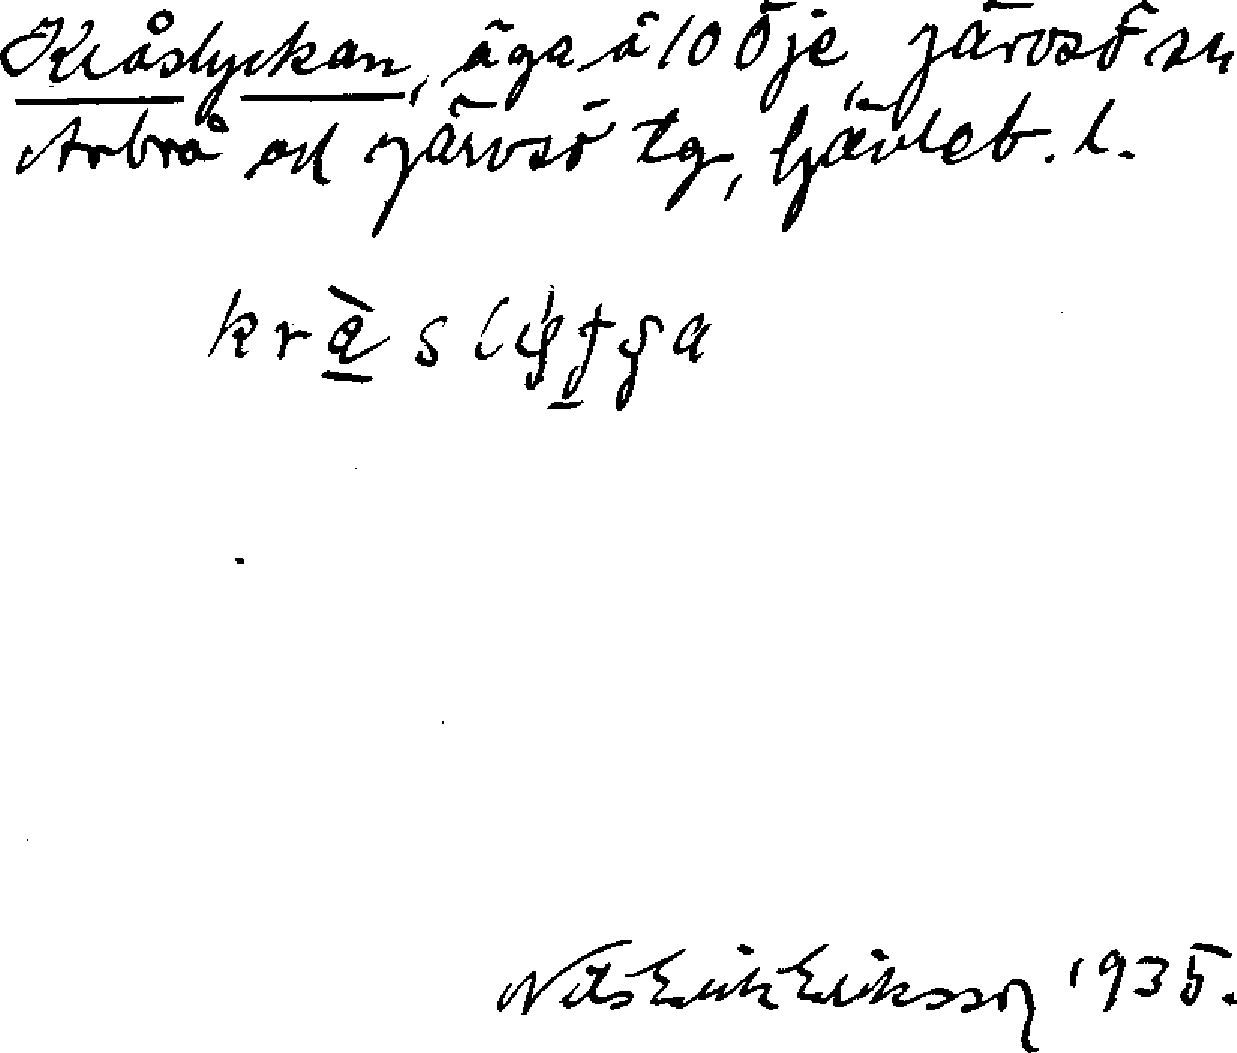 Kråslyckan, äga å 10 Öje, Järvsö sn
Arbrå och Järvsö tg, Gävleb. l.
Nils Erik Eriksson 1935.